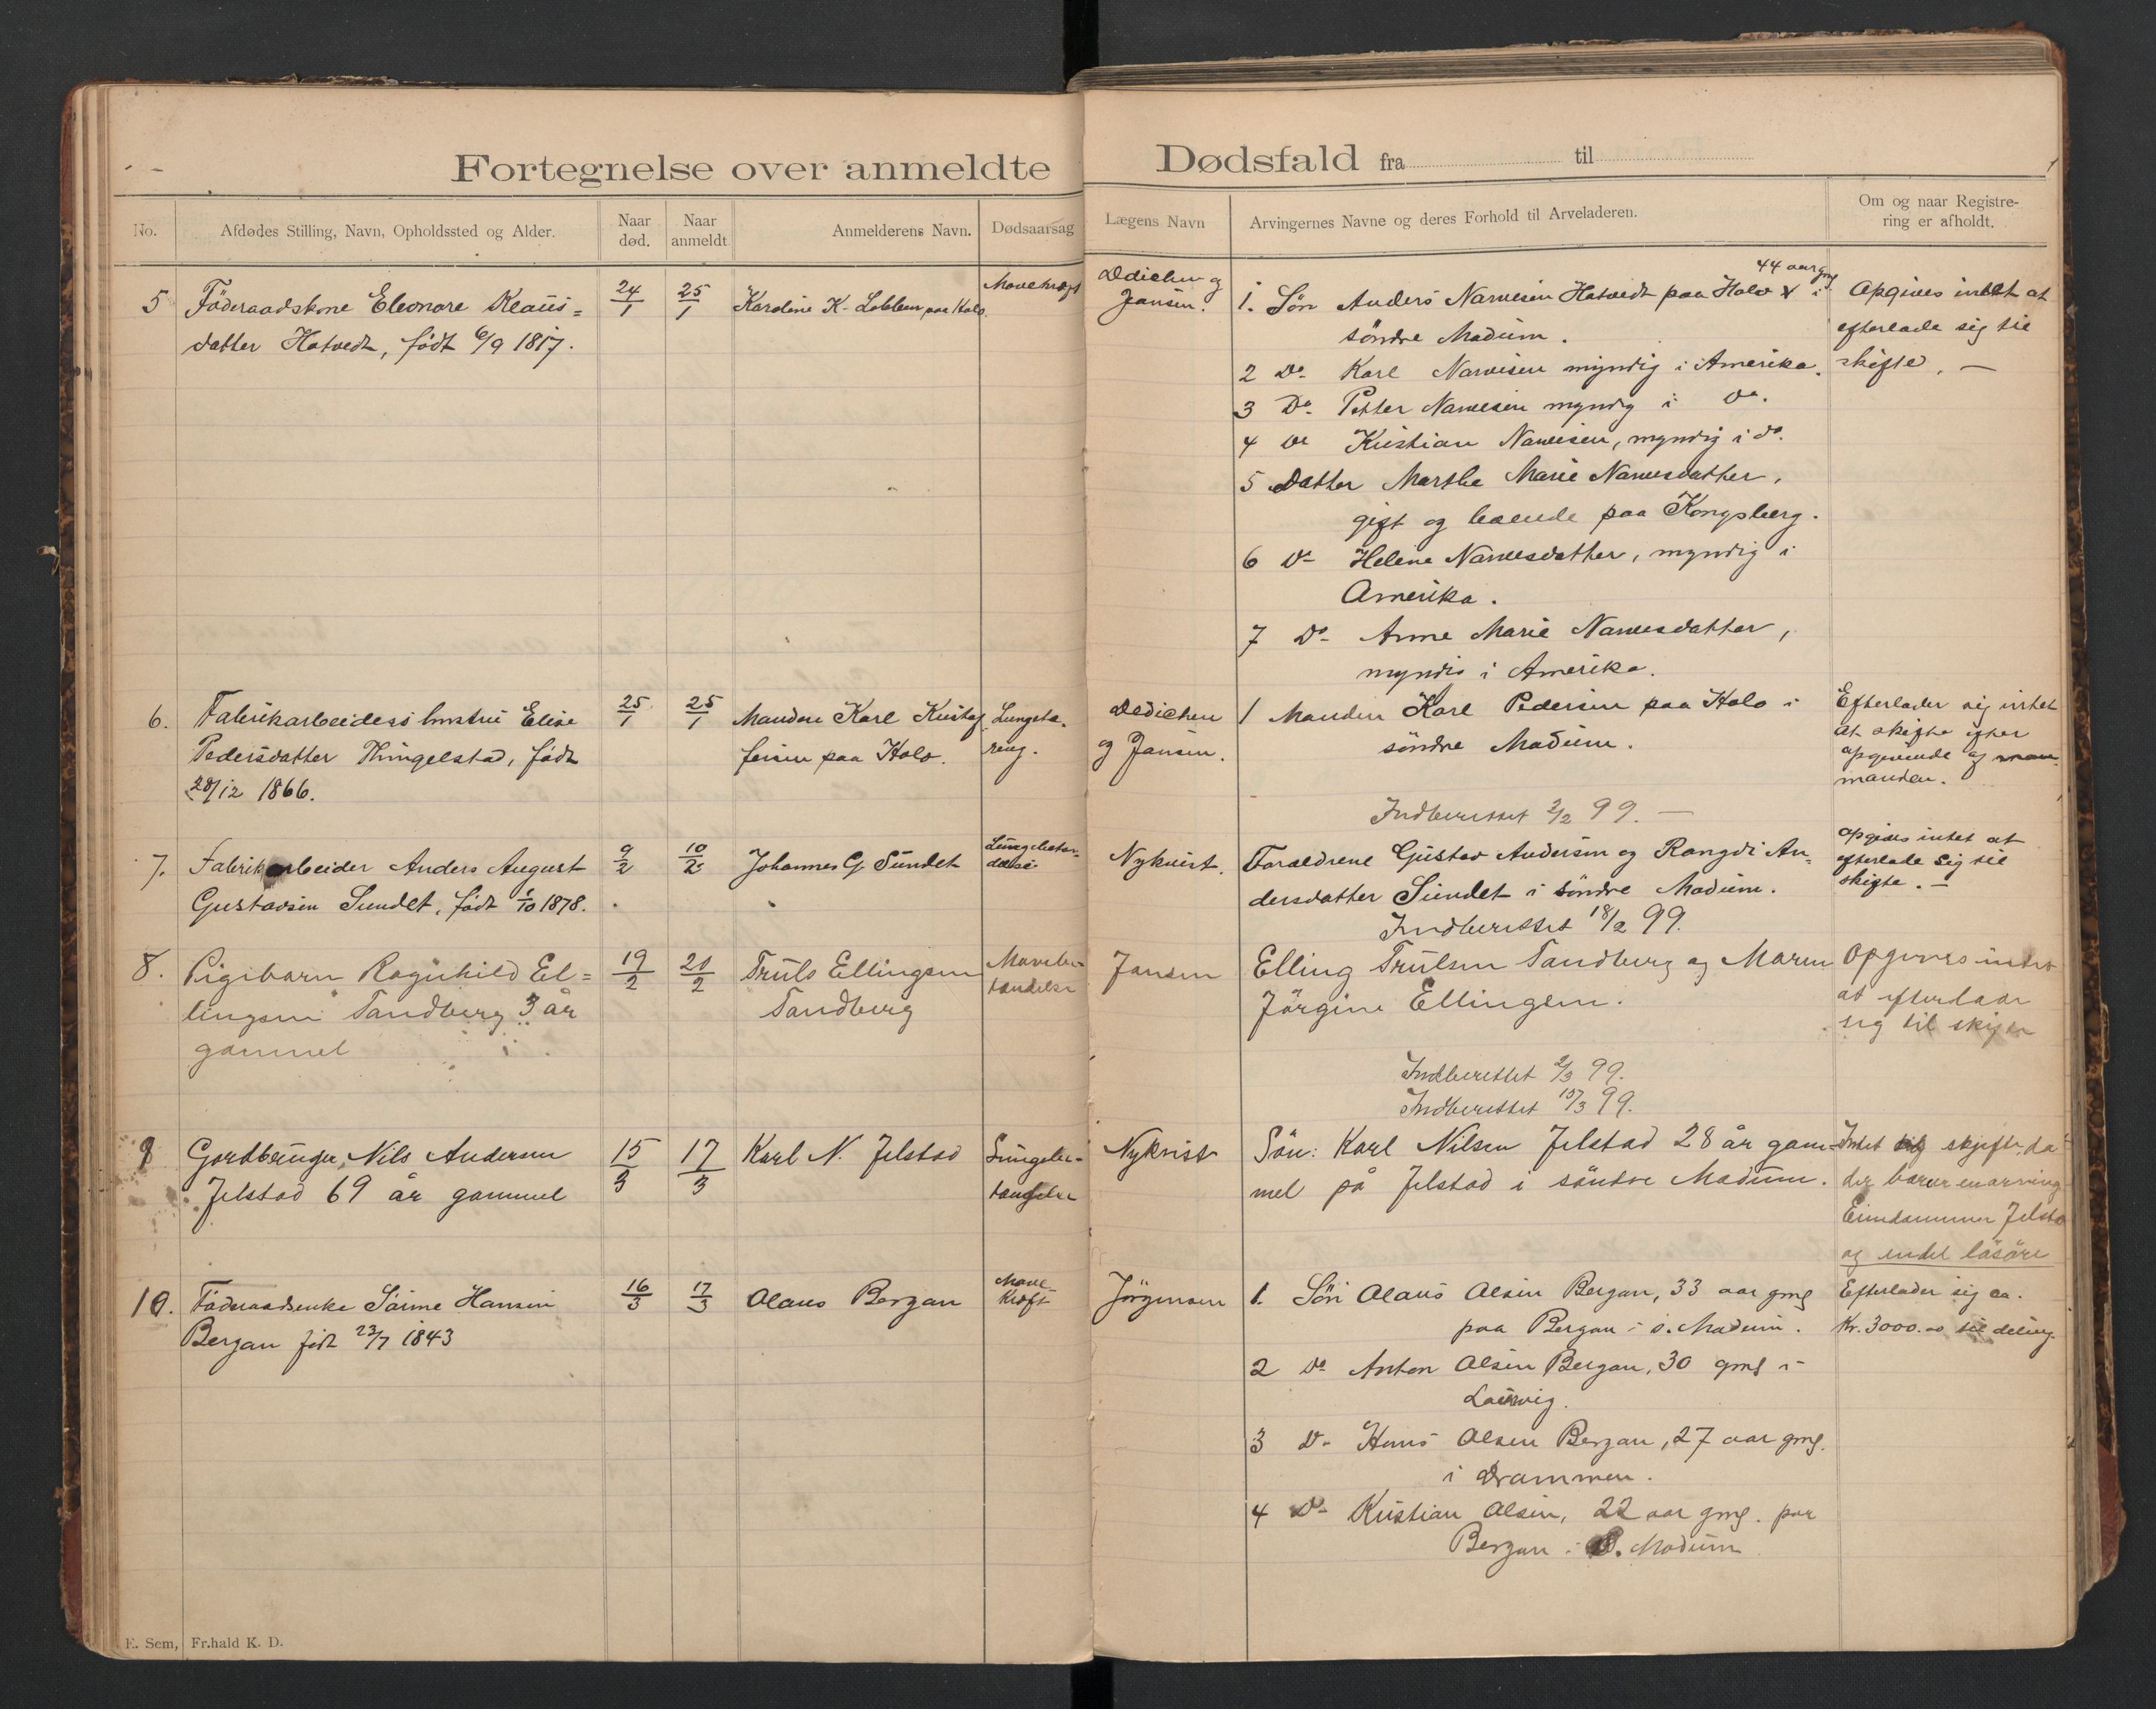 Fortegnelse over anmeldte Dødsfald fra til
No. Afdødes Stilling, Navn, Opholdssted og Alder. Naar død. Naar anmeldt Anmelderens Navn. Dødsaarsag Lægens Navn Arvingernes Navne og deres Forhold til Arveladeren. Om og naar Registrering er afholdt.
5 Föderaadskone Eleonore Klaus=
datter Hotvedt, födt 6/9 1817.
24/1 25/1 Karoline K. paa Holo. Mavekræft
Dedichen og
Jansen.
44 aar gml
1. Sön Anders Narvesen Hotvedt paa Holo i
söndre Modum.
2 Do Karl Narvesen myndig i Amerika.
3 Do Petter Narvesen myndig i do.
4 do Kristian Narvesen, myndig i do.
5 Datter Marthe Marie Narvesdatter,
gift og boende paa Kongsberg.
6 Do Helene Narvesdatter, myndig i
Amerika.
7 Do Anne Marie Narvesdatter,
myndig i Amerika.
Opgives intet at
efterlade sig til
skifte. —
6. Fabrikarbeiders hustru Elise
Pedersdatter Thingelstad, födt
28/12 1866.
25/1 25/1 Manden Karl Kustaf
paa Holo.
Lungetæ-
ring.
Dedichen
og Jansen.
1 Manden Karl Pedersen paa Holo i
söndre Modum.
Indberettet 2/2 99. —
Efterlader sig intet
at skifte efter
opgivende af
manden.
7. Fabrikarbeider Anders August
Gustavsen Sundet, födt 1/10 1878.
9/2 10/2 Johannes G. Sundet
Nykvist.
Forældrene Gustav Andersen og Rangdi An-
dersdatter Sundet i söndre Modum.
Indberettet 18/2 99.
Opgives intet at
efterlade sig til
skifte. —
8. Pigebarn Ragnhild El=
lingsen Sandberg 3 år
gammel
19/2 21/2 Truls Ellingsen
Sandberg
Jansen
Elling Trulsen Sandberg og Maren
Jörgine Ellingsen.
Indberettet 2/3 99.
Indberettet 15/3 99.
Opgives intet
at efterlade
sig til skifte
9 Gordbruger Nils Andersen
Jelstad 69 år gammel
15/3 17/3 Karl N. Jelstad
Nykvist
Sön: Karl Nilsen Jelstad 28 år gam=
mel på Jelstad i söndre Modum.
Intet skjifte da
der barer en arving
Eiendommen Jelsta
og endel lösöre
10. Föderaadsenke Hansen
Bergan födt 23/7 1843
16/3 17/3 Olaus Bergan Mave
Kræft
Jörgensen
1. Sön Olaus Olsen Bergan, 33 aar gml
paa Bergan i s. Modum.
2 Do Anton Olsen Bergan, 30 gml i
Laurvig.
3 Do Hans Olsen Bergan, 27 aar gml.
i Drammen.
4 Do Kristian Olsen, 22 aar gml. paa
Bergan i S. Modum
Efterlader sig ca.
Kr. 3000.00 til deling.
E. Sem, Fr.hald K. D.